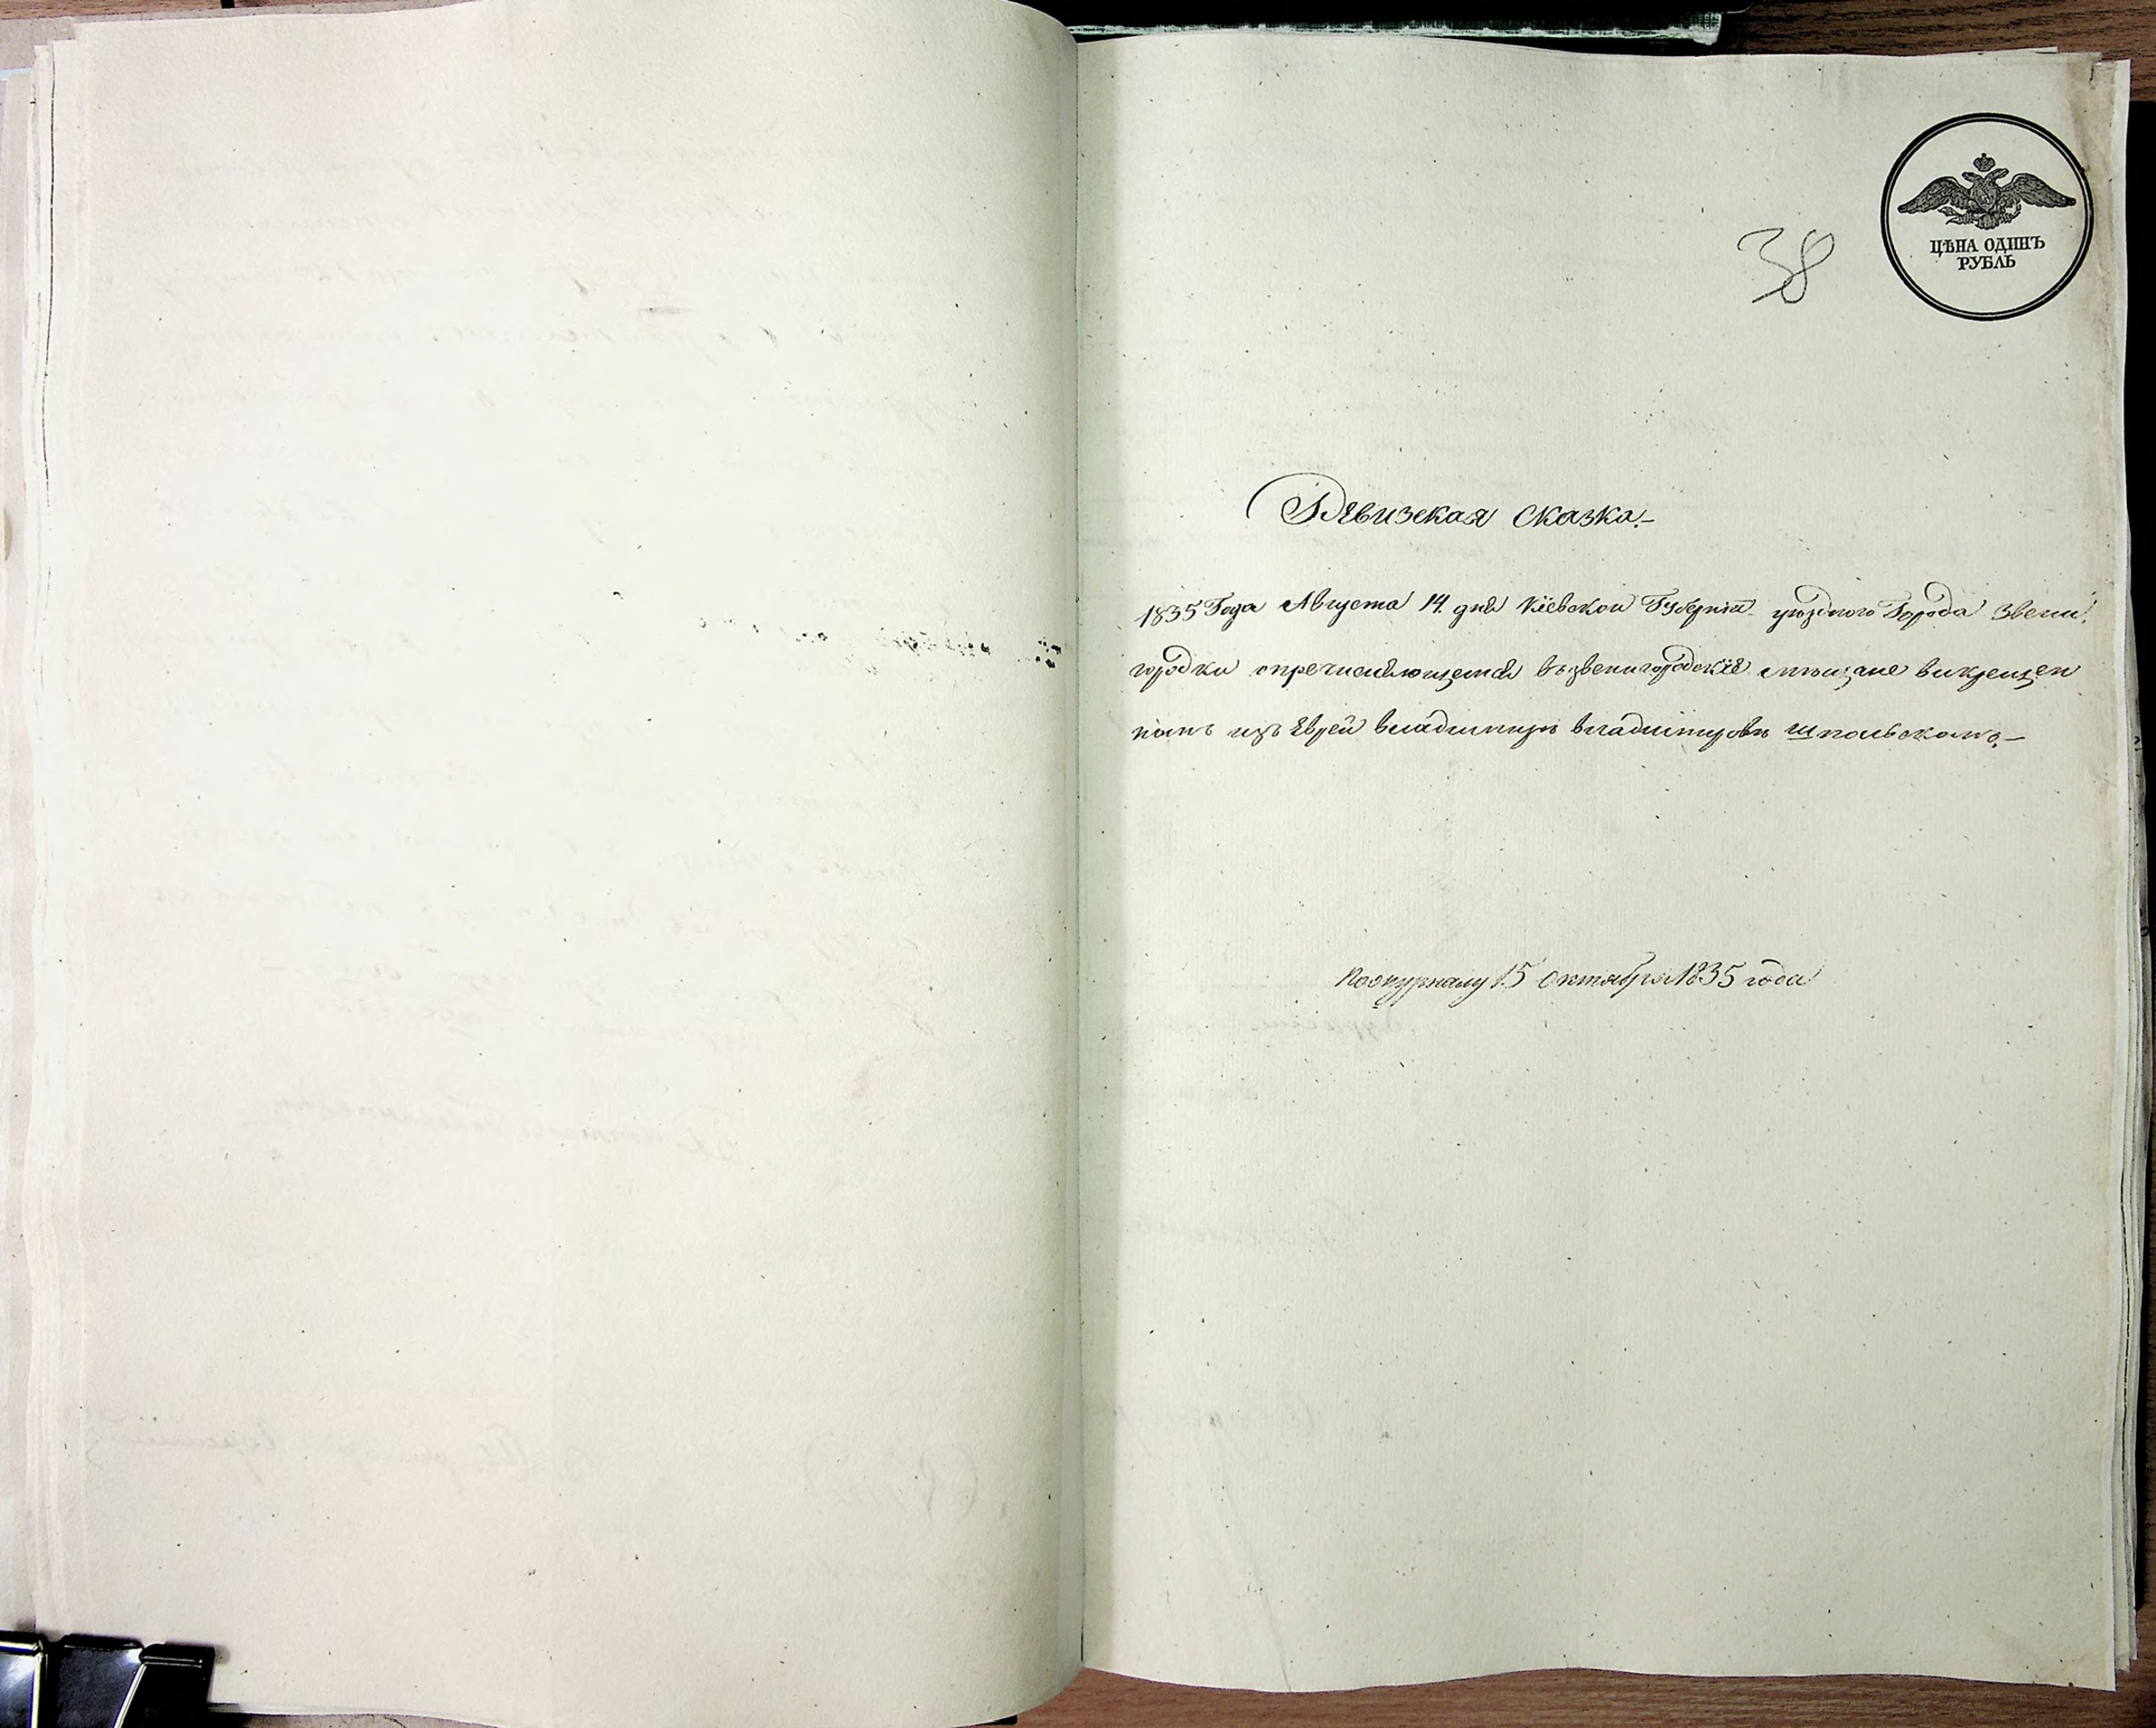 38
ЦѢНА ОДИНЪ
РУБЛЬ
Ревизская Сказка.–
1835 Года Августа 14. дня Кіевской Губерніи уѣзднаго Города Звени-
городки опречисляющемся въ звенигородскіе мѣщане викрещен
номъ изъ Еврей владимиръ владимировъ шпольскомъ.–
По журналу 15 Октября 1835 года